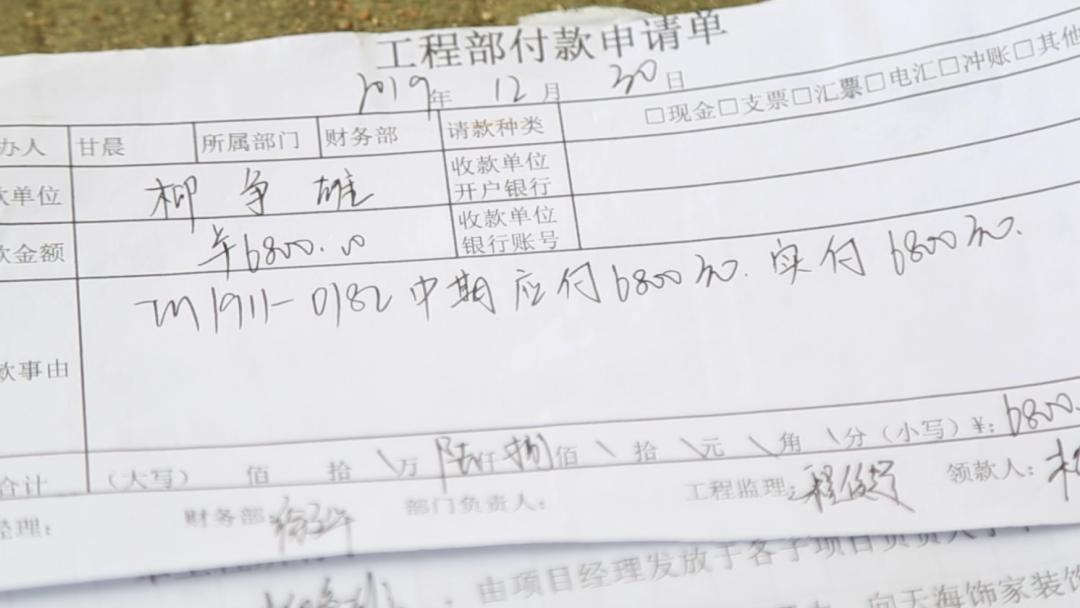 工程部付款申请单
2019年 12月 30日
办人 甘晨 所属部门 财务部 请款种类 □现金□支票□汇票□电汇□冲账□其他
款单位 柳争雄 收款单位开户银行
款金额 ¥6800.00 收款单位银行账号
款事由 TM1911-0182中期应付6800元.实付6800元.
合计 (大写) 佰 拾 \万 陆仟捌佰 \拾 \元 \角 \分 (小写)¥: 6800.
经理: 财务部: 部门负责人: 工程监理: 程 领款人:
由项目经理发放于各子项目负责人
向天海饰家装饰